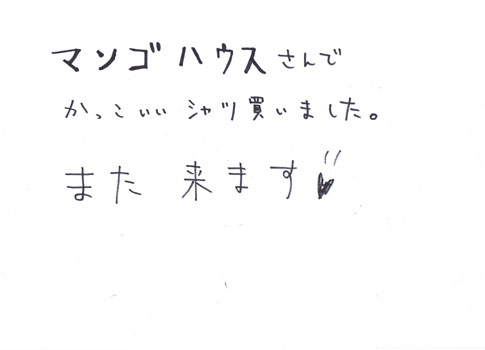 マンゴハウスさんで
かっこいいシャツ買いました。
また来ます♥